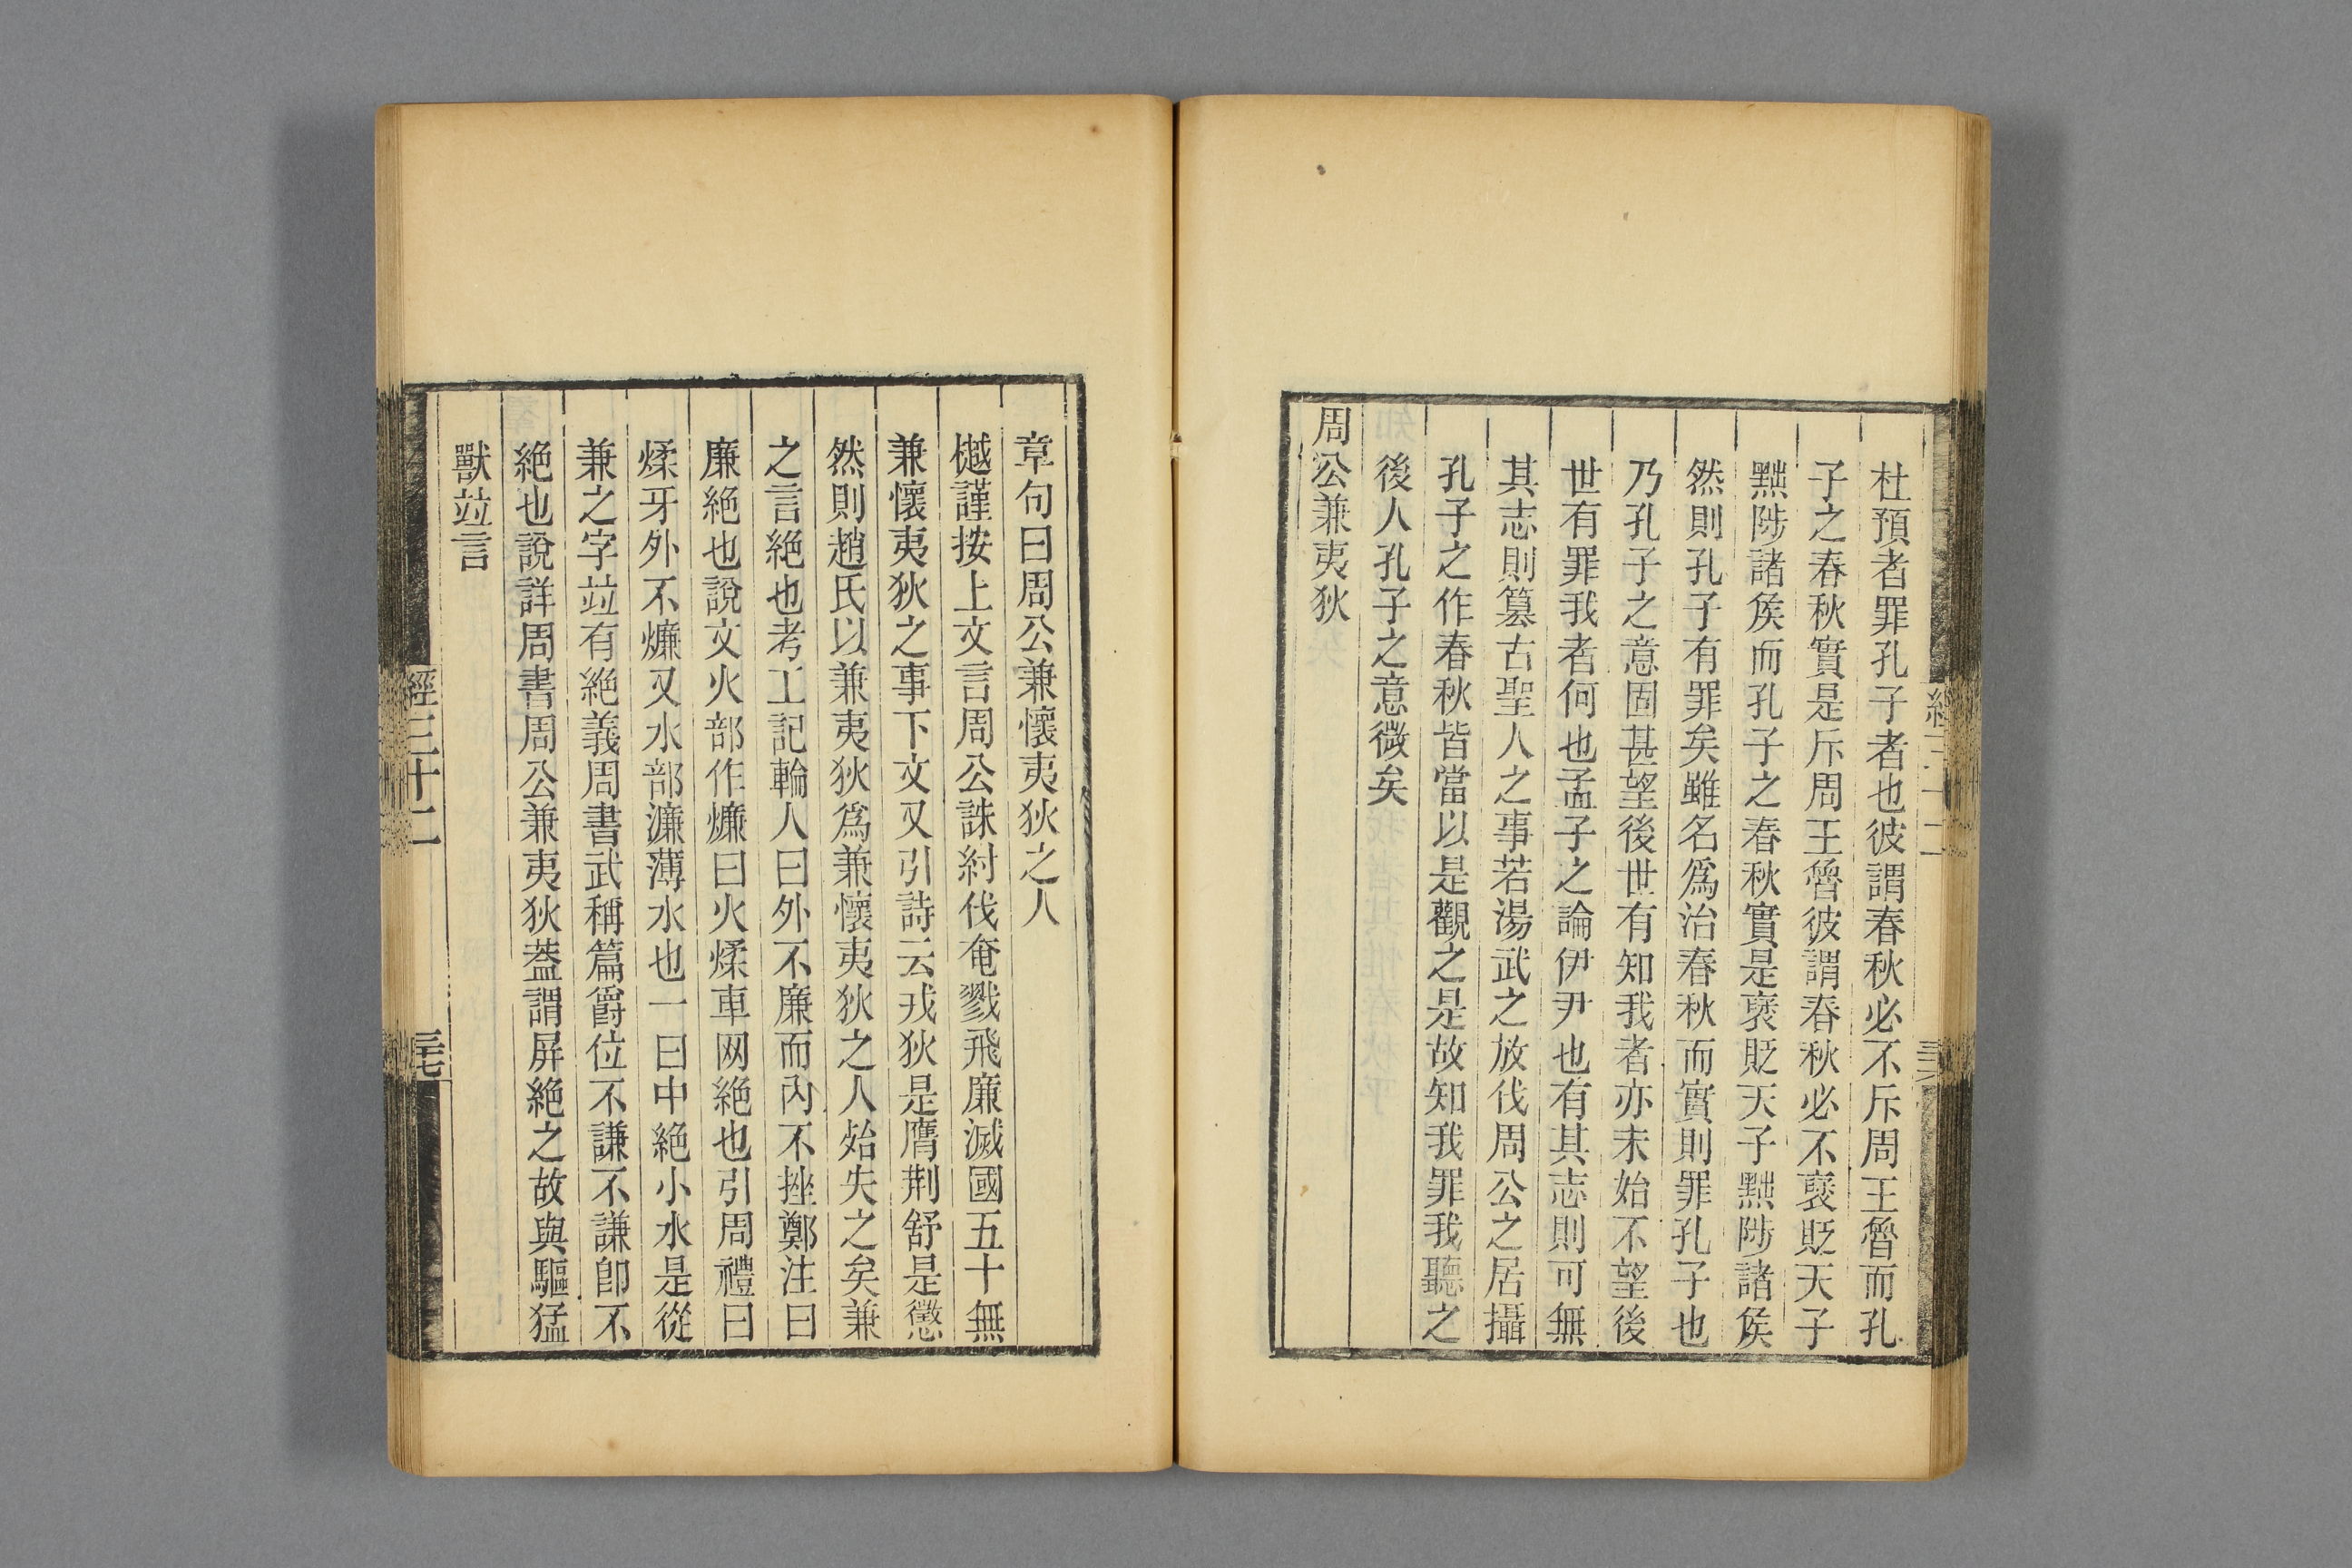 經三十二
杜預者罪孔子者也彼謂春秋必不斥周王魯而孔
子之春秋實是斥周王魯彼謂春秋必不襃貶天子
黜陟諸矦而孔子之春秋實是襃貶天子黜陟諸矦
然則孔子有罪矣雖名爲治春秋而實則罪孔子也
乃孔子之意固甚望後世有知我者亦未始不望後
世有罪我者何也孟子之論伊尹也有其志則可無
其志則篡古聖人之事若湯武之放伐周公之居攝
孔子之作春秋皆當以是觀之是故知我罪我聽之
後人孔子之意微矣
周公兼夷狄
章句曰周公兼懷夷狄之人
樾謹按上文言周公誅紂伐奄戮飛廉滅國五十無
兼懷夷狄之事下文又引詩云戎狄是膺荆舒是懲
然則趙氏以兼夷狄爲兼懷夷狄之人殆失之矣兼
之言絶也考工記輪人曰外不廉而內不挫鄭注曰
廉絶也說文火部作燫曰火煣車网絶也引周禮曰
煣牙外不燫又水部濂薄水也一曰中絶小水是從
兼之字竝有絶義周書武稱篇爵位不謙不謙卽不
絶也說詳周書周公兼夷狄葢謂屏絶之故與驅猛
獸竝言
經三十二